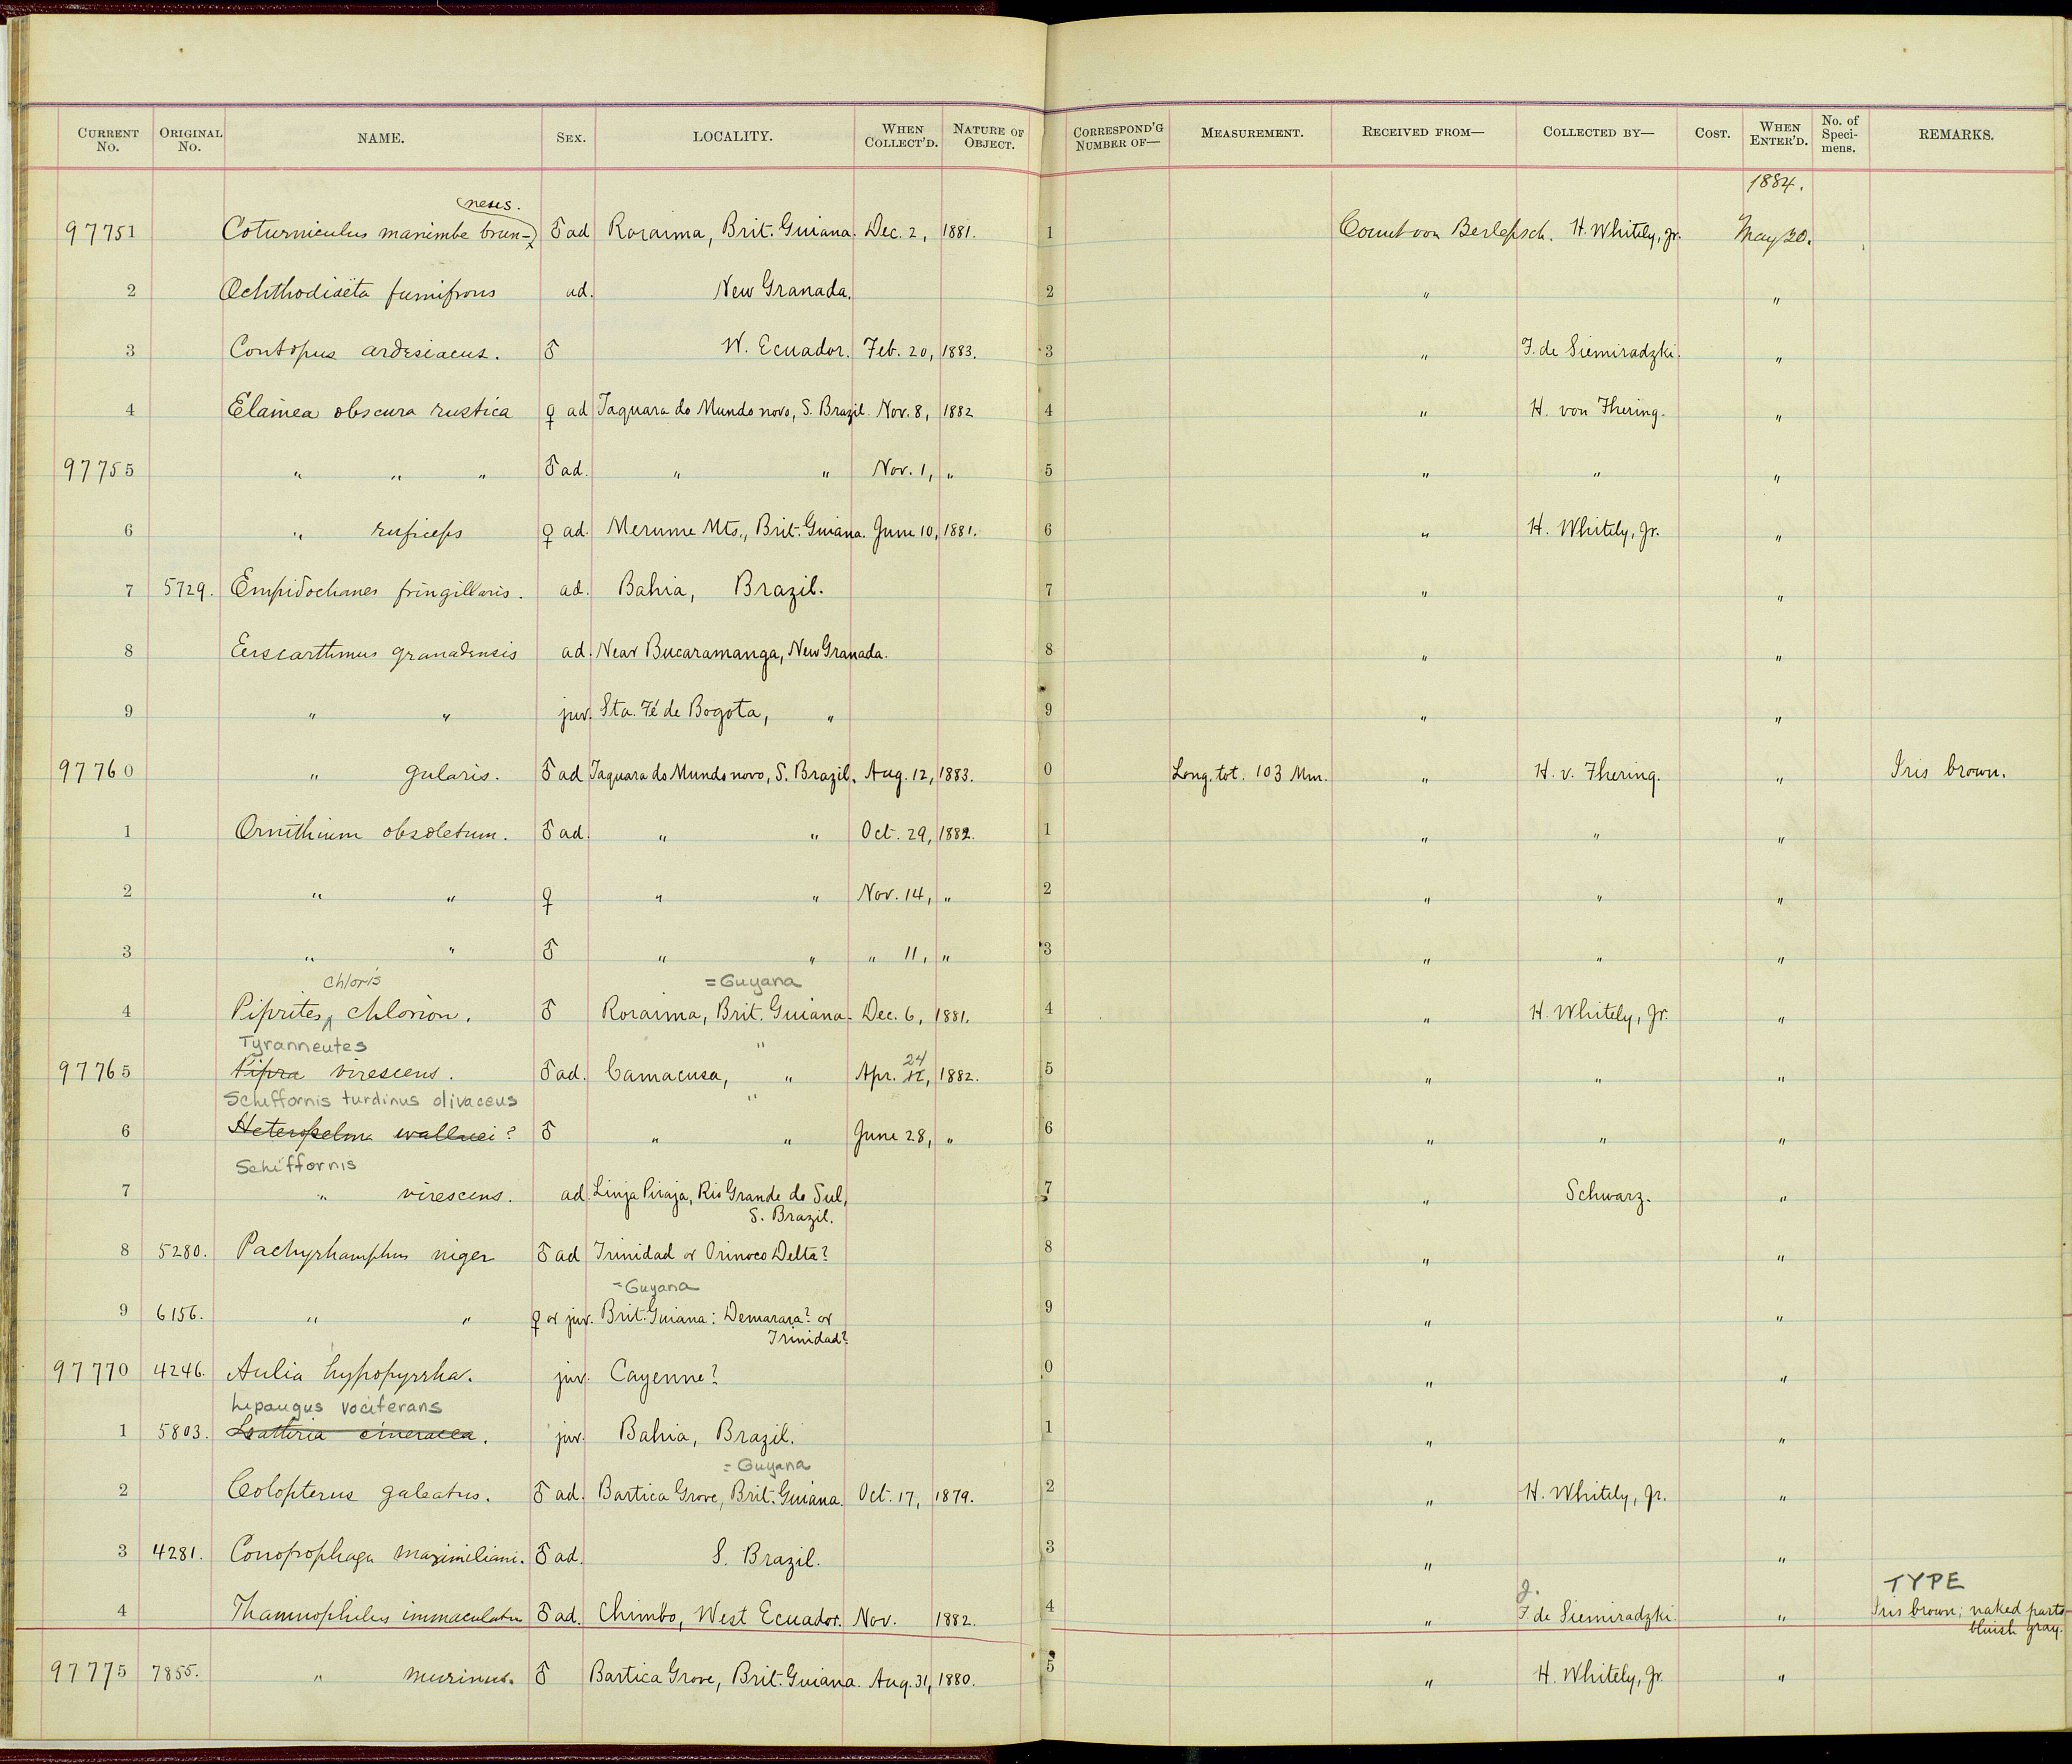 CURRENT No. ORIGINAL No. NAME. SEX. LOCALITY. WHEN COLLECT'D. NATURE OF OBJECT. CORRESPOND'G NUMBER OF— MEASUREMENT. RECEIVED FROM— COLLECTED BY— COST. WHEN ENTER'D. No. of Specimens. REMARKS.
1884.
neus.
97751 Coturniculus manimbe brun- ♂ ad Roraima, Brit. Guiana. Dec. 2, 1881. 1 Count von Berlepsch. H. Whitely, Jr. May 20.
2 Ochthodiaëta fumifrons ad. New Granada. 2 " "
3 Contopus ardesiacus. ♂ W. Ecuador. Feb. 20, 1883. 3 " J. de Siemiradzki. "
4 Elainea obscura rustica ♀ ad Taquara do Mundo novo, S. Brazil. Nov. 8, 1882 4 " H. von Jhering. "
97755 " " " ♂ ad. " " Nov. 1, " 5 " " "
6 " ruficeps ♀ ad. Merume Mts., Brit. Guiana. June 10, 1881. 6 " H. Whitely, Jr. "
7 5729. Empidochanes fringillaris. ad. Bahia, Brazil. 7 " "
8 Euscarthmus granadensis ad. Near Bucaramanga, New Granada. 8 " "
9 " " juv. Sta. Fé de Bogota, " 9 " "
97760 " gularis. ♂ ad Taquara do Mundo novo, S. Brazil. Aug. 12, 1883. 0 Long. tot. 103 Mm. " H. v. Jhering. " Iris brown.
1 Ornithium obsoletum. ♂ ad. " " Oct. 29, 1882. 1 " " "
2 " " ♀ " " Nov. 14, " 2 " " "
3 " " ♂ " " " 11, " 3 " " "
chloris =Guyana
4 Piprites chlorion. ♂ Roraima, Brit. Guiana. Dec. 6, 1881. 4 " H. Whitely, Jr. "
Tyranneutes " 24
97765 Pipra virescens. ♂ ad. Camacusa, " Apr. 12, 1882. 5 " " "
Schiffornis turdinus olivaceus "
6 Heteropelma wallacei? ♂ " " June 28, " 6 " " "
Schiffornis
7 " virescens. ad. Linja Piraja, Rio Grande do Sul, 7 " Schwarz. "
S. Brazil.
8 5280. Pachyrhamphus niger ♂ ad Trinidad or Orinoco Delta? 8 " "
=Guyana
9 6156. " " ♀ or juv. Brit. Guiana: Demarara? or 9 " "
Trinidad?
97770 4246. Aulia hypopyrrha. juv. Cayenne? 0 " "
Lipaugus vociferans
1 5803. Lathria cineracea. juv. Bahia, Brazil. 1 " "
=Guyana
2 Colopterus galeatus. ♂ ad. Bartica Grove, Brit. Guiana. Oct. 17, 1879. 2 " H. Whitely, Jr. "
3 4281. Conopophaga maximiliani. ♂ ad. S. Brazil. 3 " "
J. TYPE
4 Thamnophilus immaculatus ♂ ad. Chimbo, West Ecuador. Nov. 1882. 4 " J. de Siemiradzki " Iris brown; naked parts
bluish gray.
97775 7855. " murinus. ♂ Bartica Grove, Brit. Guiana. Aug. 31, 1880. 5 " H. Whitely, Jr. "